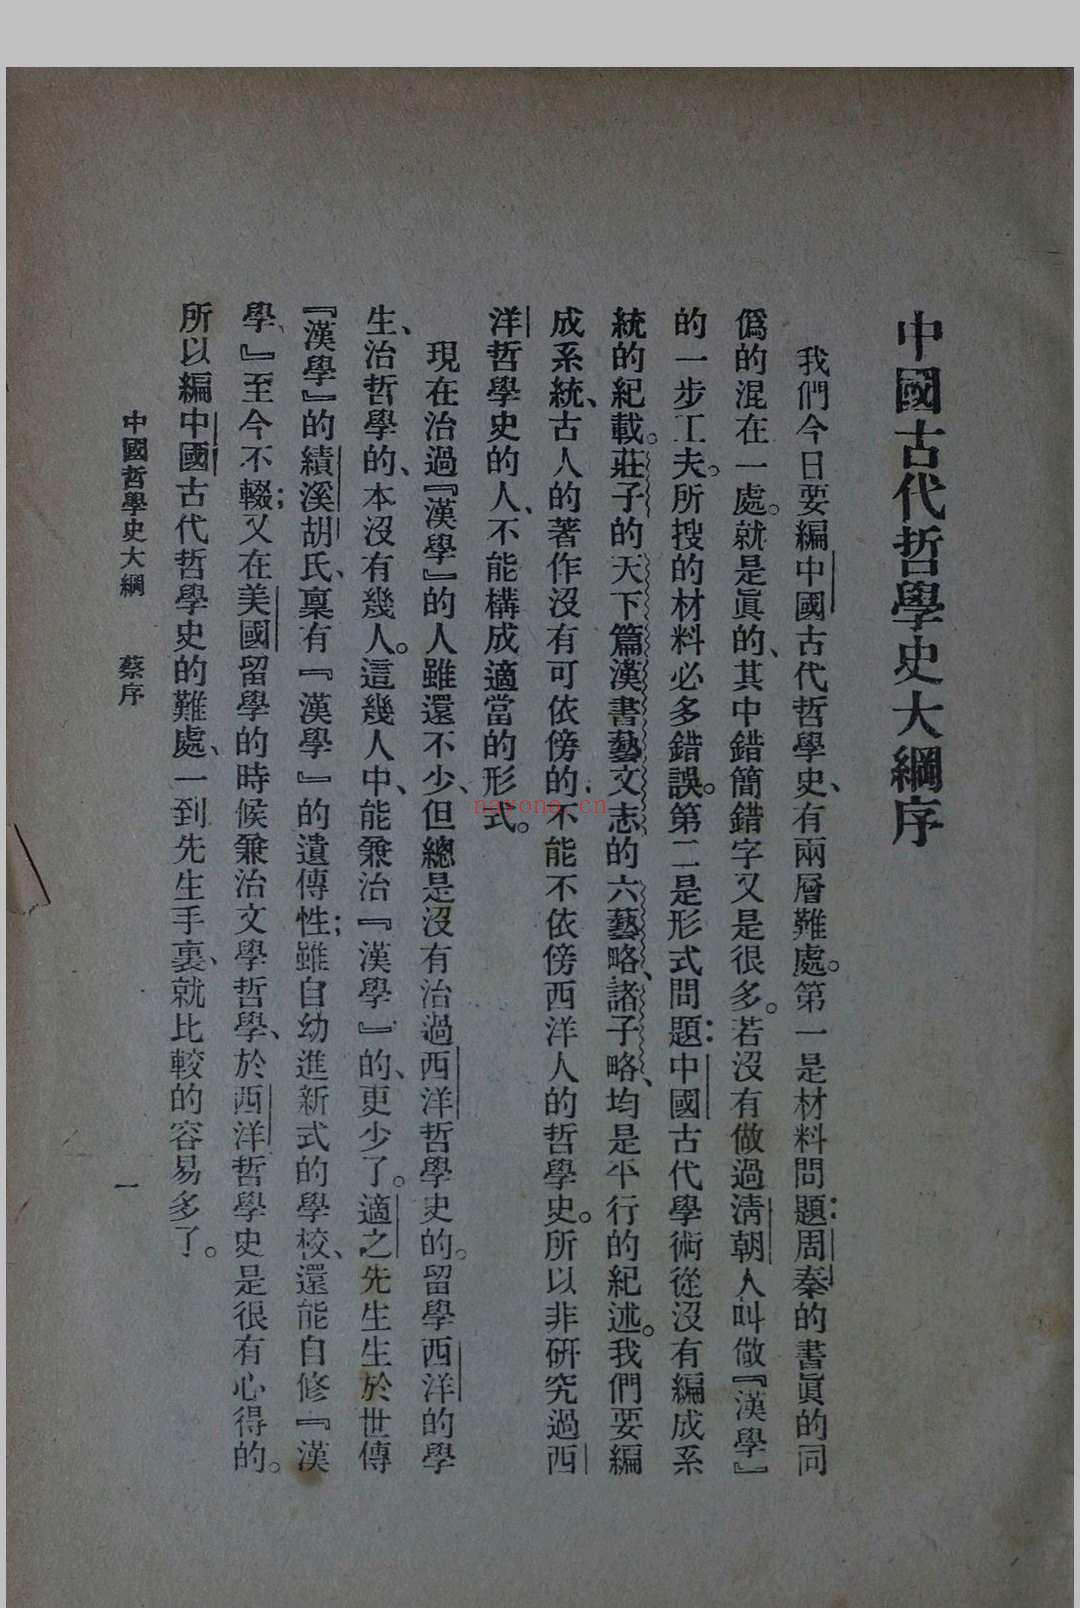 中國古代哲學史大綱序
我們今日要編中國古代哲學史、有兩層難處。第一是材料問題：周秦的書眞的同
僞的混在一處。就是眞的、其中錯簡錯字又是很多。若沒有做過淸朝人叫做『漢學』
的一步工夫。所搜的材料必多錯誤。第二是形式問題：中國古代學術從沒有編成系
統的紀載。莊子的天下篇漢書藝文志的六藝略、諸子略、均是平行的紀述。我們要編
成系統、古人的著作沒有可依傍的、不能不依傍西洋人的哲學史。所以非研究過西
洋哲學史的人、不能構成適當的形式。
現在治過『漢學』的人雖還不少、但總是沒有治過西洋哲學史的。留學西洋的學
生、治哲學的、本沒有幾人。這幾人中、能兼治『漢學』的、更少了。適之先生生於世傳
『漢學』的績溪胡氏、稟有『漢學』的遺傳性；雖自幼進新式的學校、還能自修『漢
學、』至今不輟；又在美國留學的時候兼治文學哲學、於西洋哲學史是很有心得的。
所以編中國古代哲學史的難處、一到先生手裏、就比較的容易多了。
中國哲學史大綱　蔡序　一
nayona.cn